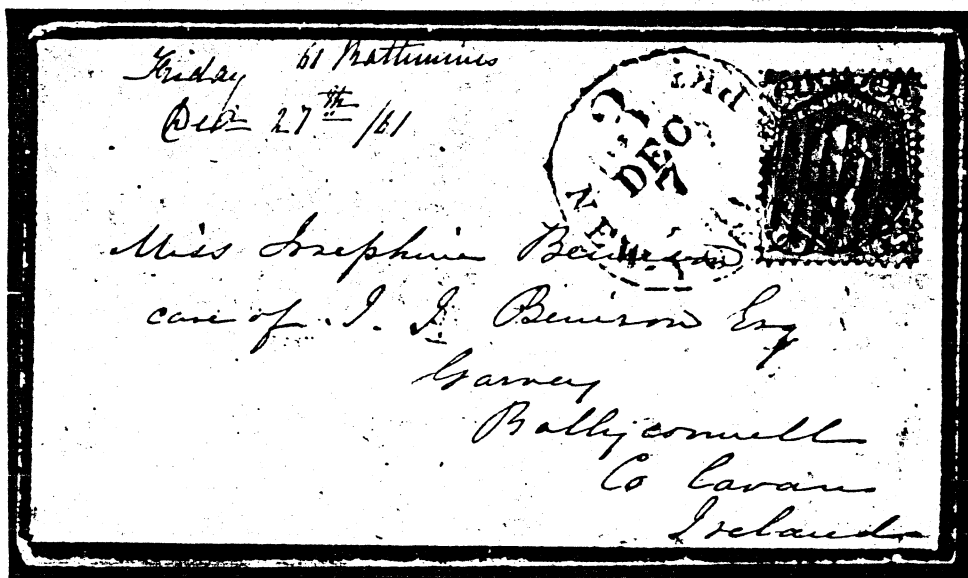 Friday 61 Rathmines
Decr 27th /61
3
PKT
DEC
7
NEW
Miss Josephine Benison
care of J. J. Benison Esq
Ballyconnell
Co Cavan
Ireland